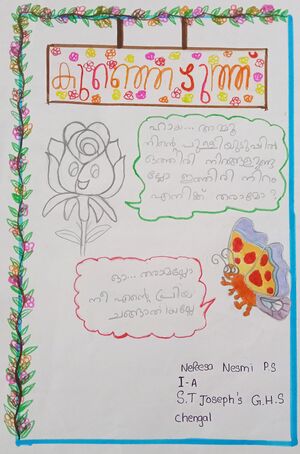 കുഞ്ഞെഴുത്ത്
ഹായ... അമ്മൂ
നിന്റെ പുള്ളിയുടുപ്പിൽ
ഒത്തിരി നിറങ്ങളുണ്ട
ല്ലോ ഇത്തിരി നിറം
എനിക്ക് തരാമോ?
ഓ... തരാമല്ലോ
നീ എന്റെ പ്രിയ
ചങ്ങാതിയല്ലേ
Nefesa Nesmi P.S
I-A
S.T Joseph's G.H.S
Chengal